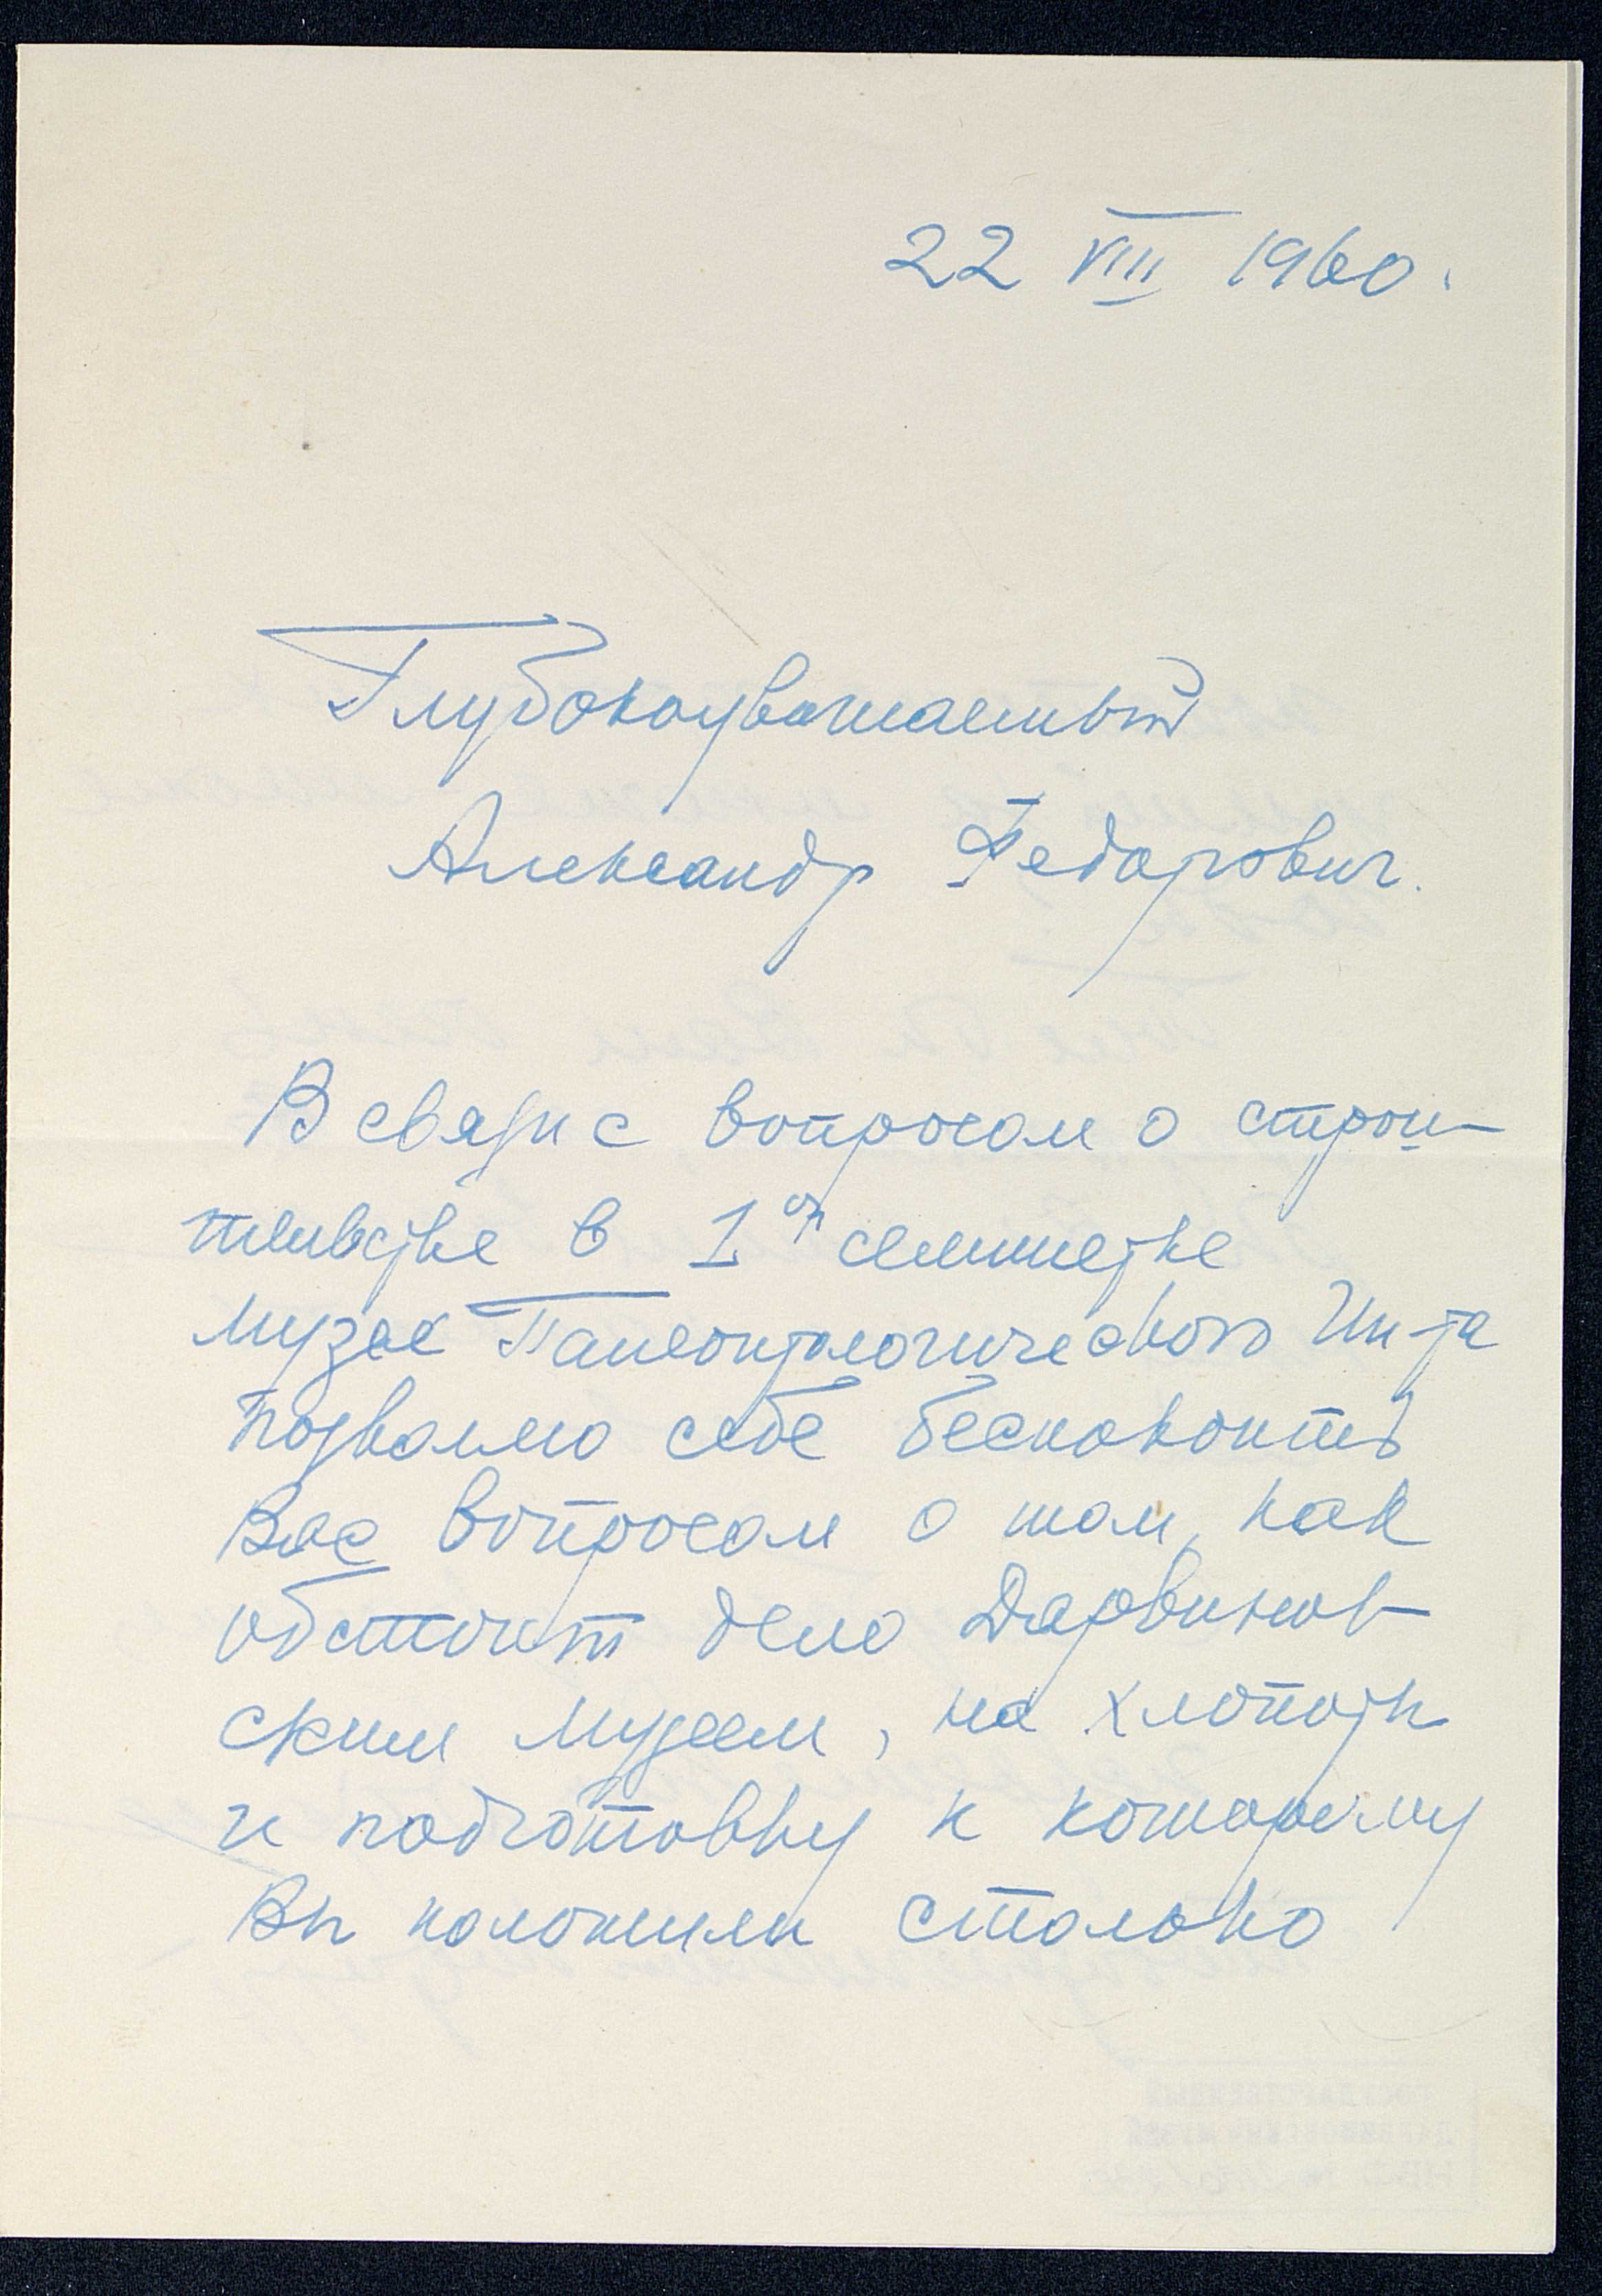 22 VIII 1960.
Глубокоуважаемый
Александр Федорович.
В связи с вопросом о строи-
тельстве в 1ой семилетке
Музея Палеонтологического Ин-та
позволяю себе беспокоить
Вас вопросом о том, как
обстоит дело Дарвинов-
ским музеем, на хлопоты
и подготовку к которому
Вы положили столько